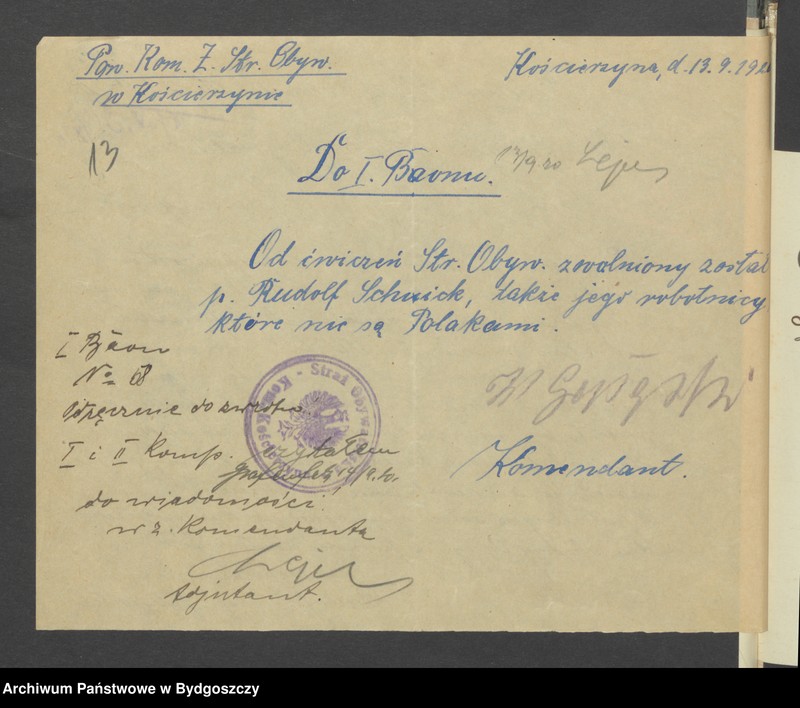 Pow. Kom. Z. Str. Obyw.
w Kościerzynie
Kościerzyna, d. 13. 9. 192
13
Do I. Baonu.
13/9 20 Lejer
Od ćwiczeń Str. Obyw. zwolniony został
p. Rudolf Schwick, także jego robotnicy
które nie są Polakami.
I Baon
No 68
Odręcznie do zwrotu
I i II Komp. czytałem
14/9. 20.
do wiadomości!
w z. Komendanta
Lejer
Adjutant.
Straż Obywa
Komendant.
Archiwum Państwowe w Bydgoszczy